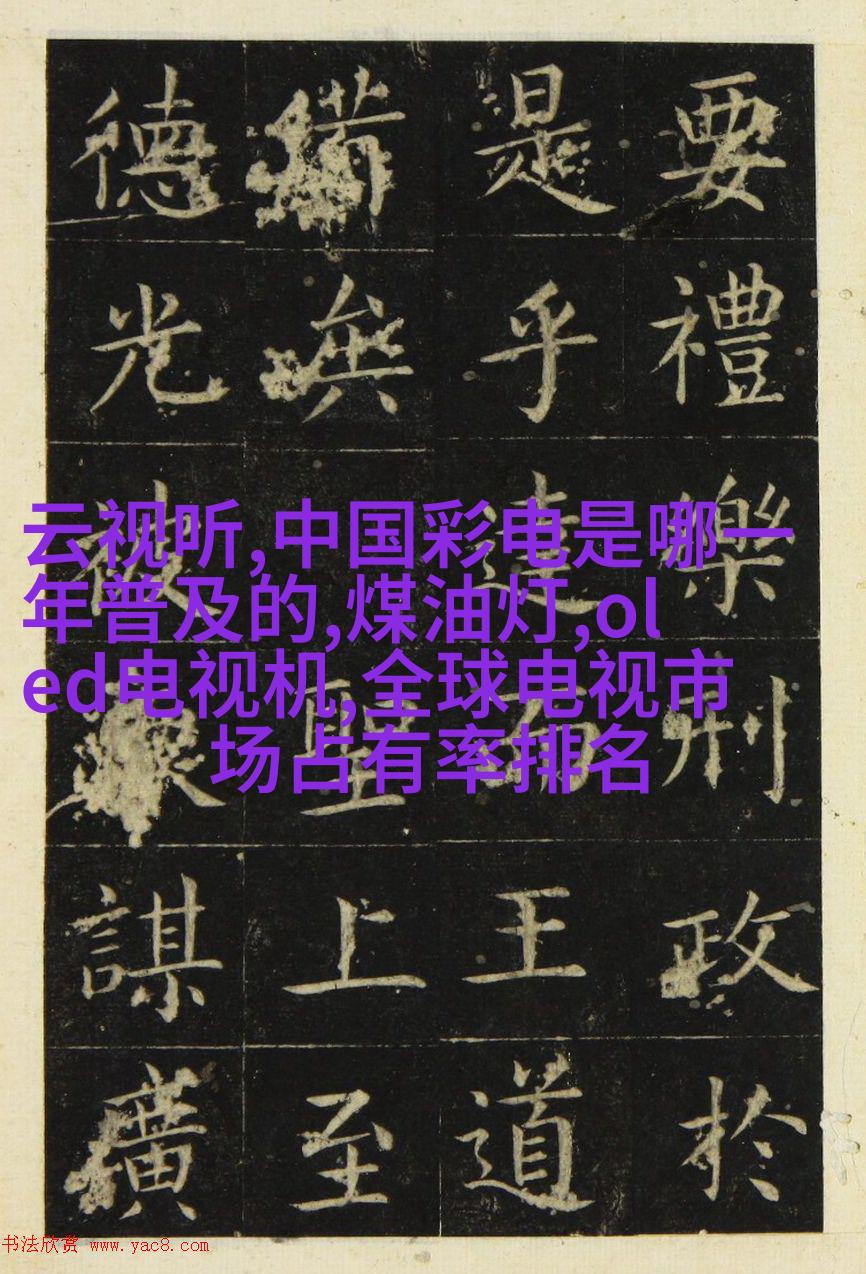 云视听,中国彩电是哪一
年普及的,煤油灯,ol
ed电视机,全球电视市
场占有率排名
要禮樂刑政於
是乎達而王道
備聖上至
德光被謀廣
书法欣赏 www.yac8.com